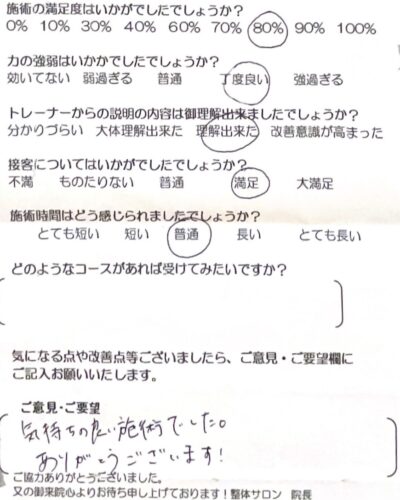 施術の満足度はいかがでしたでしょうか？
0% 10% 30% 40% 60% 70% 80% 90% 100%
力の強弱はいかかでしたでしょうか？
効いてない 弱過ぎる 普通 丁度良い 強過ぎる
トレーナーからの説明の内容は御理解出来ましたでしょうか？
分かりづらい 大体理解出来た 理解出来た 改善意識が高まった
接客についてはいかがでしたでしょうか？
不満 ものたりない 普通 満足 大満足
施術時間はどう感じられましたでしょうか？
とても短い 短い 普通 長い とても長い
どのようなコースがあれば受けてみたいですか？
気になる点や改善点等ございましたら、ご意見・ご要望欄に
ご記入お願いいたします。
ご意見・ご要望
気持ちの良い施術でした。
ありがとうございます！
ご協力ありがとうございました。
又の御来院心よりお待ち申し上げております！整体サロン 院長